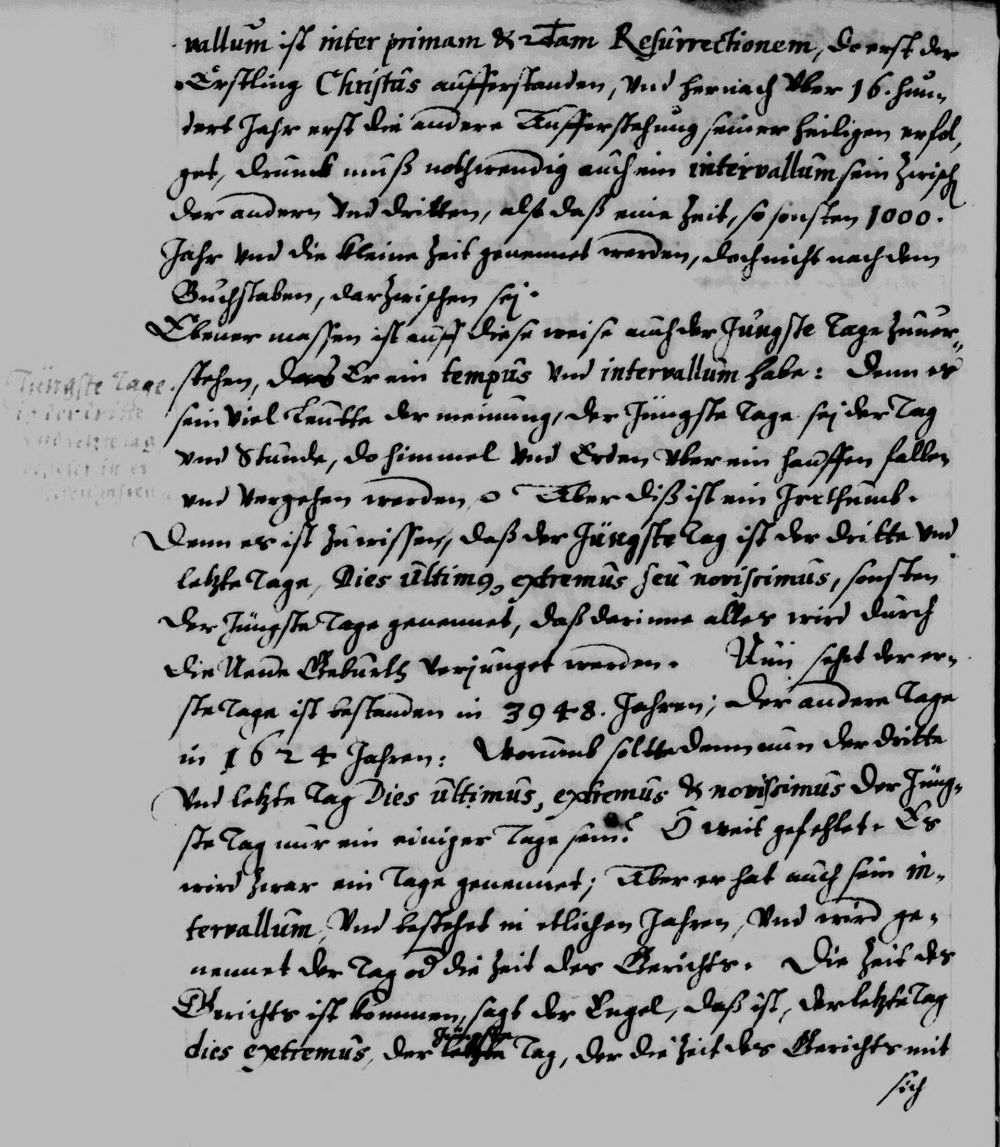 vallum ist inter primam & 2dam Resurrectionem, do erst der
Erstling Christus aufferstanden, vnd hernach vber 16. hun-
dert Jahr erst die andere Aufferstehung seiner heiligen erfol,
get, drumb muß nothwendig auch ein intervallum sein zwisch
der andern vnd dritten, alß daß eine zeit, so sonsten 1000.
Jahr vnd die kleine zeit genennet werden, doch nicht nach dem
Buchstaben, darzwischen sej.
Ebener massen ist auff diese weise auch der Jüngste Tage zuuer-
stehen, das Er ein tempus vnd intervallum habe: Denn es
sein viel Leutte der meinung, der Jüngste Tage sej der Tag
vnd Stunde, do himmel vnd Erden vber ein hauffen fallen
vnd vergehen werden. Aber diß ist ein Irrthumb.
Denn es ist zu wissen, daß der Jüngste Tag ist der dritte vnd
letzte Tage, Dies ultimus, extremus seu novissimus, sonsten
der Jüngste Tage genennet, daß darinne alles wird durch
die Neue Geburth verjunget werden. Nun sehet der er-
ste Tage ist bestanden in 3948. Jahren; der andere Tage
in 1624 Jahren: Warumb sollte denn nun der dritte
vnd letzte Tag Dies ultimus, extremus & novissimus der Jüng-
ste Tag nur ein einiger Tage sein? O weit gefehlet. Es
wird zwar ein Tage genennet; Aber er hat auch sein in-
tervallum, vnd bestehet in etlichen Jahren, vnd wird ge-
nennet der Tag od die zeit des Gerichts. Die zeit des
Gerichts ist kommen, sagt der Engel, daß ist, der letzte Tag
dies extremus, der Jüngste letzte Tag, der die zeit des Gerichts mit
sich
Jüngste Tage
ist der dritte
vnd letzte tag